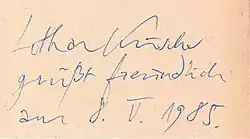 Lothar
grüßt freundlich
am 8. V. 1985.